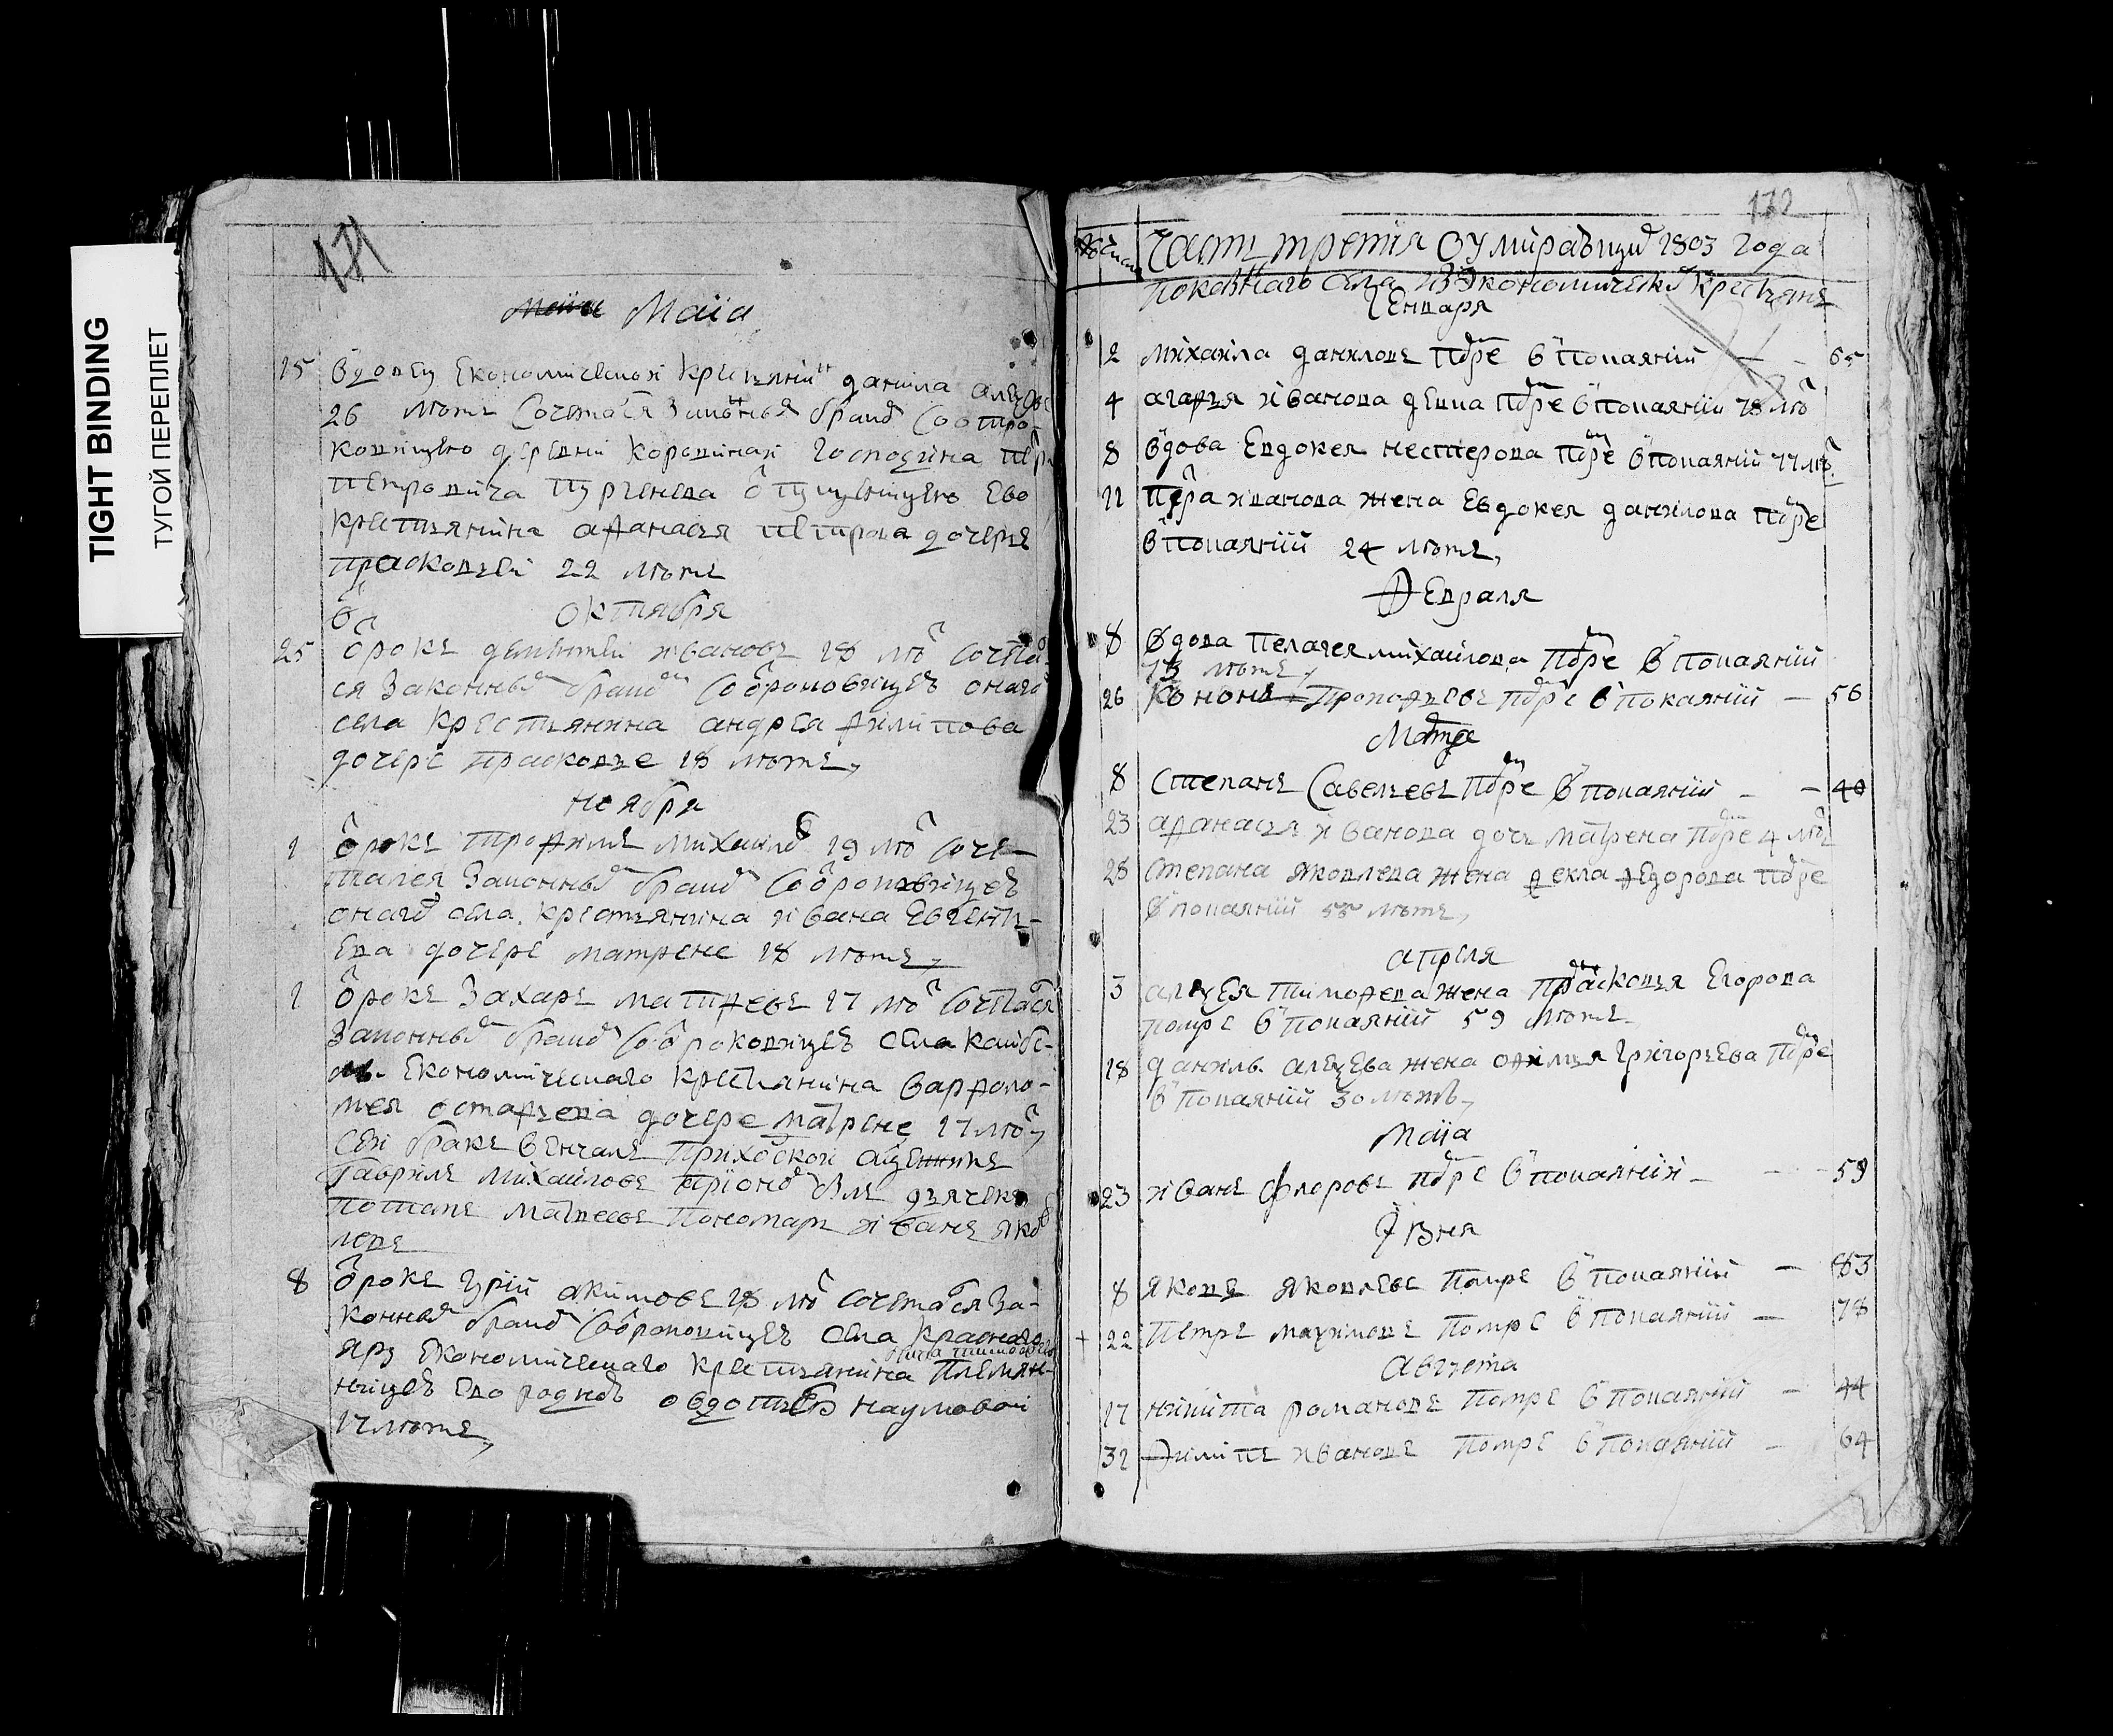 TIGHT BINDING
ТУГОЙ ПЕРЕПЛЕТ
171
Маiа
15 вдовец Економической крестьянинъ данила алеѯѣ
26 летъ сочетася законныя бракъ со отро-
ковицею деревни господина петра
петровича отпущеницею ево
крестьянина афанасья петрова дочерью
прасковьей 22 летъ
октября
25 отрокъ дементей ивановъ 18 лѣ сочета
ся законнымъ бракомъ со отроковицею онаго
села крестьянина андрея филипова
дочере прасковье 18 летъ,
ноября
1 отрокъ трофимъ михаилов 19 лѣ соче-
тался законнымъ бракомъ со отроковицею
онаго села крестьянина ивана
ева дочере матрене 18 летъ,
1 отрокъ захаръ матфевъ 17 лѣ сочетася
законнымъ бракомъ со отроковицею села
Економическаго крестьянина варфоло-
мея остафьева дочере матрене 17 лѣ,
сеи бракъ венчалъ приходской
гаврилъ михаиловъ при ономъ былъ дьячекъ
потапъ матвеевъ пономаръ иванъ яко
левъ
8 отрокъ гурiй акимовъ 18 лѣ сочетася за-
коннымъ бракомъ со отроковицею села краснаго
яру економическаго крестьянина племян-
ницею ево родною овдотьею наумовой
17 летъ,
172
часть третiя о умiравшихъ 1803 года
показаннаго села изъ экономическихъ крестьянъ
Генваря
2 михаила даниловъ помре в покаянiи — 65
4 агафья иванова девка помре в покаянiи 78 лѣ
8 вдова евдокея нестерова помре в покаянiи 77 лѣ
11 петра иванова жена евдокея данилова помре
в покаянiи 24 летъ,
Февраля
8 вдова пелагея михаилова помре в покаянiи
73 летъ,
26 кононъ прокофьевъ помре в покаянiи — 56
Марта
8 степанъ савельевъ помре в покаянiи - - 40
23 афанасья иванова дочь матрена помре 4 лѣ
28 степана яковлева жена фекла федорова помре
в покаянiи 55 летъ,
апреля
3 алеѯѣя тимофева жена прасковья егорова
помре в покаянiи 59 летъ
18 данилы алеѯева жена офимья григорьева помре
в покаянiи 30 летъ,
Маiа
23 иванъ флоровъ помре в покаянiи - - 59
Iюня
8 яковъ яковлевъ помре в покаянiи — 83
+ 22 петръ маѯимовъ помре в покаянiи — 78
августа
17 никита романовъ помре в покаянiи — 44
31 филипъ ивановъ помре в покаянiи - 64